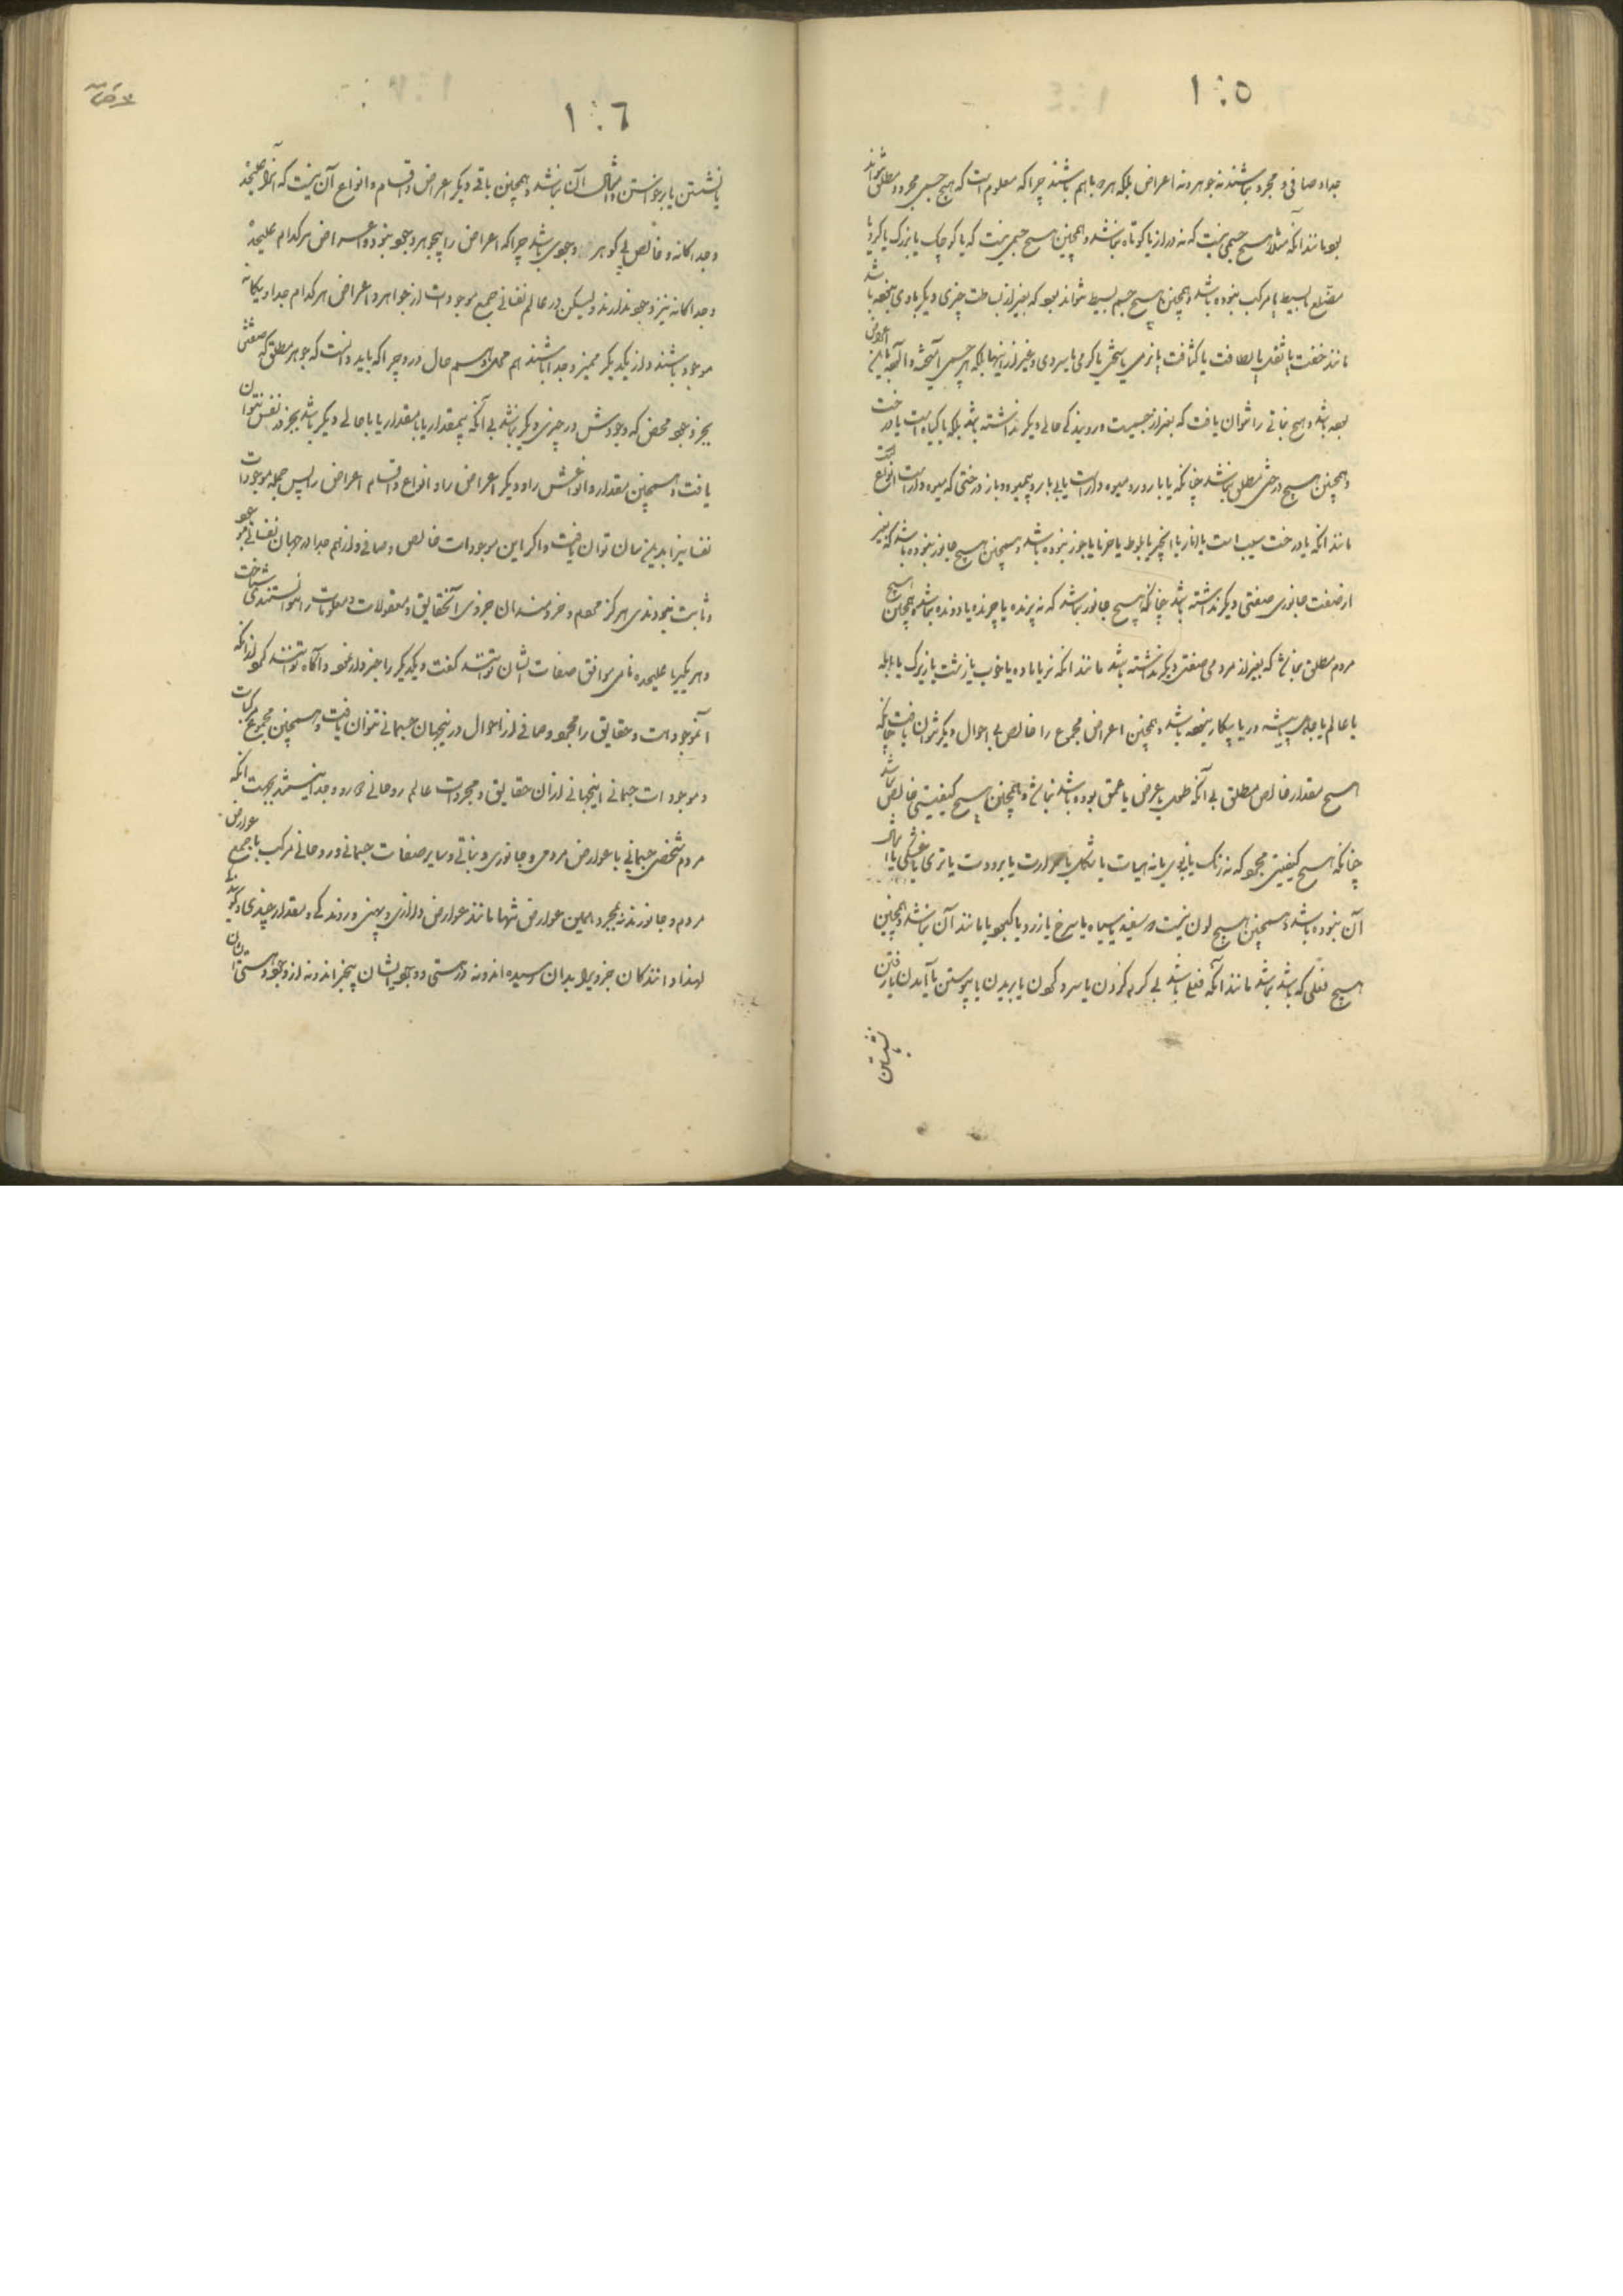 ١٠٥
جدا و صافی و مجرد نباشند نه جوهر و نه اعراض بلکه همه باهم باشند چرا که معلوم است که هیچ جسمی مجرد و مطلق نتواند
بود مانند آنکه مثلا هیچ جسمی نیست که نه دراز یا کوتاه نباشد و همچنین هیچ جسمی نیست که یا کوچک یا بزرگ یا گرد یا
مضلع یا بسیط یا مرکب نبوده باشد و همچنین هیچ جسم بسیط نتواند بود که بغیر از بساطت چیزی دیگر با وی نبوده باشد
مانند خفت یا ثقل یا لطافت یا کثافت یا نرمی یا سختی یا گرمی یا سردی و غیر از اینها بلکه هر جسمی آمیخته و آلوده باین اعراض
بوده باشد و هیچ نباتی را نتوان یافت که بغیر از جسمیت و رویندگی حالی دیگر نداشته باشد بلکه یا گیاه است یا درخت
و همچنین هیچ درختی مطلق نباشد چنانکه یا بارور و میوه دار است یا بی بار و بیمیوه و باز درختی که میوه دار است انواع است
مانند آنکه یا درخت سیب است یا انار یا انجیر یا بلوط یا خرما یا جوز نبوده باشد و همچنین هیچ جانور نبوده باشد که بغیر
از صفت جانوری صفتی دیگر نداشته باشد چنانکه هیچ جانور نباشد که نه پرنده یا چرنده یا دونده نباشد و همچنین هیچ
مردم مطلق نباشد که بغیر از مردمی صفتی دیگر نداشته باشد مانند آنکه نر یا ماده یا خوب یا زشت یا زیرک یا ابله
یا عالم یا جاهل یا پیشه ور یا بیکار نبوده باشد و همچنین اعراض مجموع را خالص بی احوال دیگر نتوان یافت چنانکه
هیچ مقدار خالص مطلق بی آنکه طول یا عرض یا عمق بوده باشد نباشد و همچنین هیچ کیفیتی خالص نباشد
چنانکه هیچ کیفیتی مجرد که نه رنگ یا بوی یا نه هیات یا شکل یا حرارت یا برودت یا تری یا خشکی یا امثال
آن نبوده باشد و همچنین هیچ لون نیست ور سفید یا سیاه یا سرخ یا زرد یا کبود یا مانند آن نباشد و همچنین
هیچ فعلی که باشد نباشد مانند آنکه فعل باشد بی گرم کردن یا سرد کردن یا بریدن یا پیوستن یا آمدن یا رفتن
نشستن
١٠٦
یا نشستن یا برخواستن و امثال آن نباشد و همچنین باقی دیگر اعراض و اقسام و انواع آن نیست که آنرا علیحده
و جداگانه و خالص بی گوهر وجودی باشد چرا که اعراض را بیجوهر وجود نبود و اعراض هر کدام علیحده
و جداگانه نیز وجود ندارند ولیکن در عالم نفسانی جمیع موجودات از جواهر و اعراض هر کدام جدا و یگانه
موجود باشند و از یکدیگر ممیز و جدا باشند هم محل و هم حال درو چرا که باید دانست که جوهر مطلق که صفتش
بجز وجود محض که وجودش در چیزی دیگر نباشد بی آنکه بیمقدار یا بامقدار یا با حالی دیگر باشد بجز در نفس نتوان
یافت و همچنین مقدار و انواعش را و دیگر اعراض را و انواع و اقسام اعراض را پس جمله موجودات
نفسانیرا بدین سان توان یافت و اگر این موجودات خالص و صافی و از هم جدا در جهان نفسانی موجود
و ثابت نبودندی هرگز مردم و خردمندان جزوی آنحقایق و معقولات و معلومات را نتوانستندی شناخت
و هر یکیرا علیحده نامی موافق صفات ایشان توانستند گفت و یکدیگر را خبردار نمود و آگاه توانستند کرد از آنکه
آنموجودات و حقایق را مجرد و صافی از احوال در اینجهان جسمانی نتوان یافت و همچنین مجموع مرکبات
و موجودات جسمانی اینجهانی از آن حقایق و مجردات عالم روحانی دور و جدا نیستند بجهت آنکه
مردم شخص جسمانی با عوارض مردمی و جانوری و نباتی و سایر صفات جسمانی و روحانی مرکب با جمیع عوارض
مردم و جانورند نه بمجرد همین عوارض تنها مانند عوارض درازی و پهنی و روندگی و مقدار چندی و گویندگی
لهذا دانندگان جزویرا بدان رسیده اند و نه از هستی و وجود ایشان بیخبر اند و نه از وجود و هستی